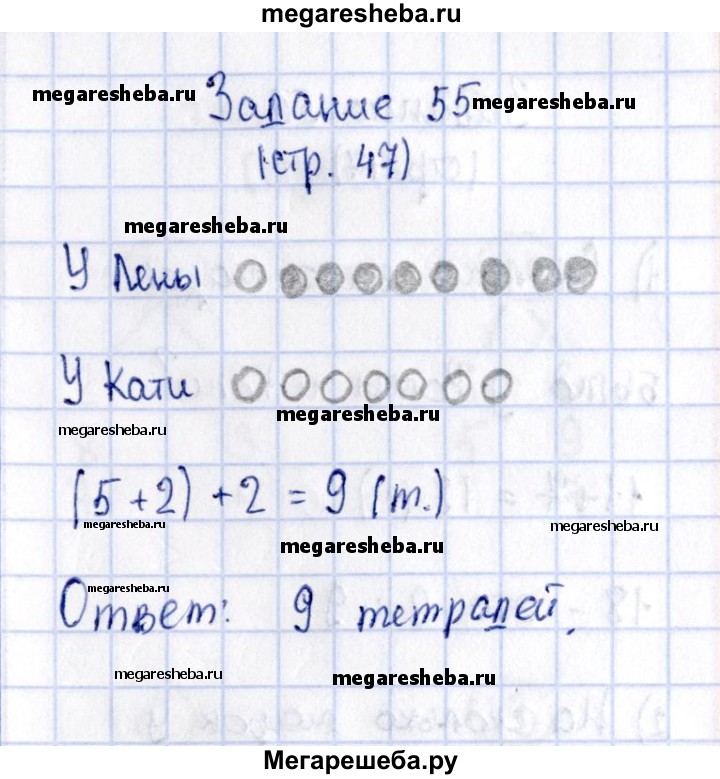 megaresheba.ru
megaresheba.ru Задание 55 megaresheba.ru
(стр. 47)
megaresheba.ru
У Лены
У Кати
megaresheba.ru
megaresheba.ru
(5+2) + 2 = 9 (т.)
megaresheba.ru megaresheba.ru
megaresheba.ru
megaresheba.ru
Ответ: 9 тетрадей.
megaresheba.ru megaresheba.ru
Мегарешеба.ру